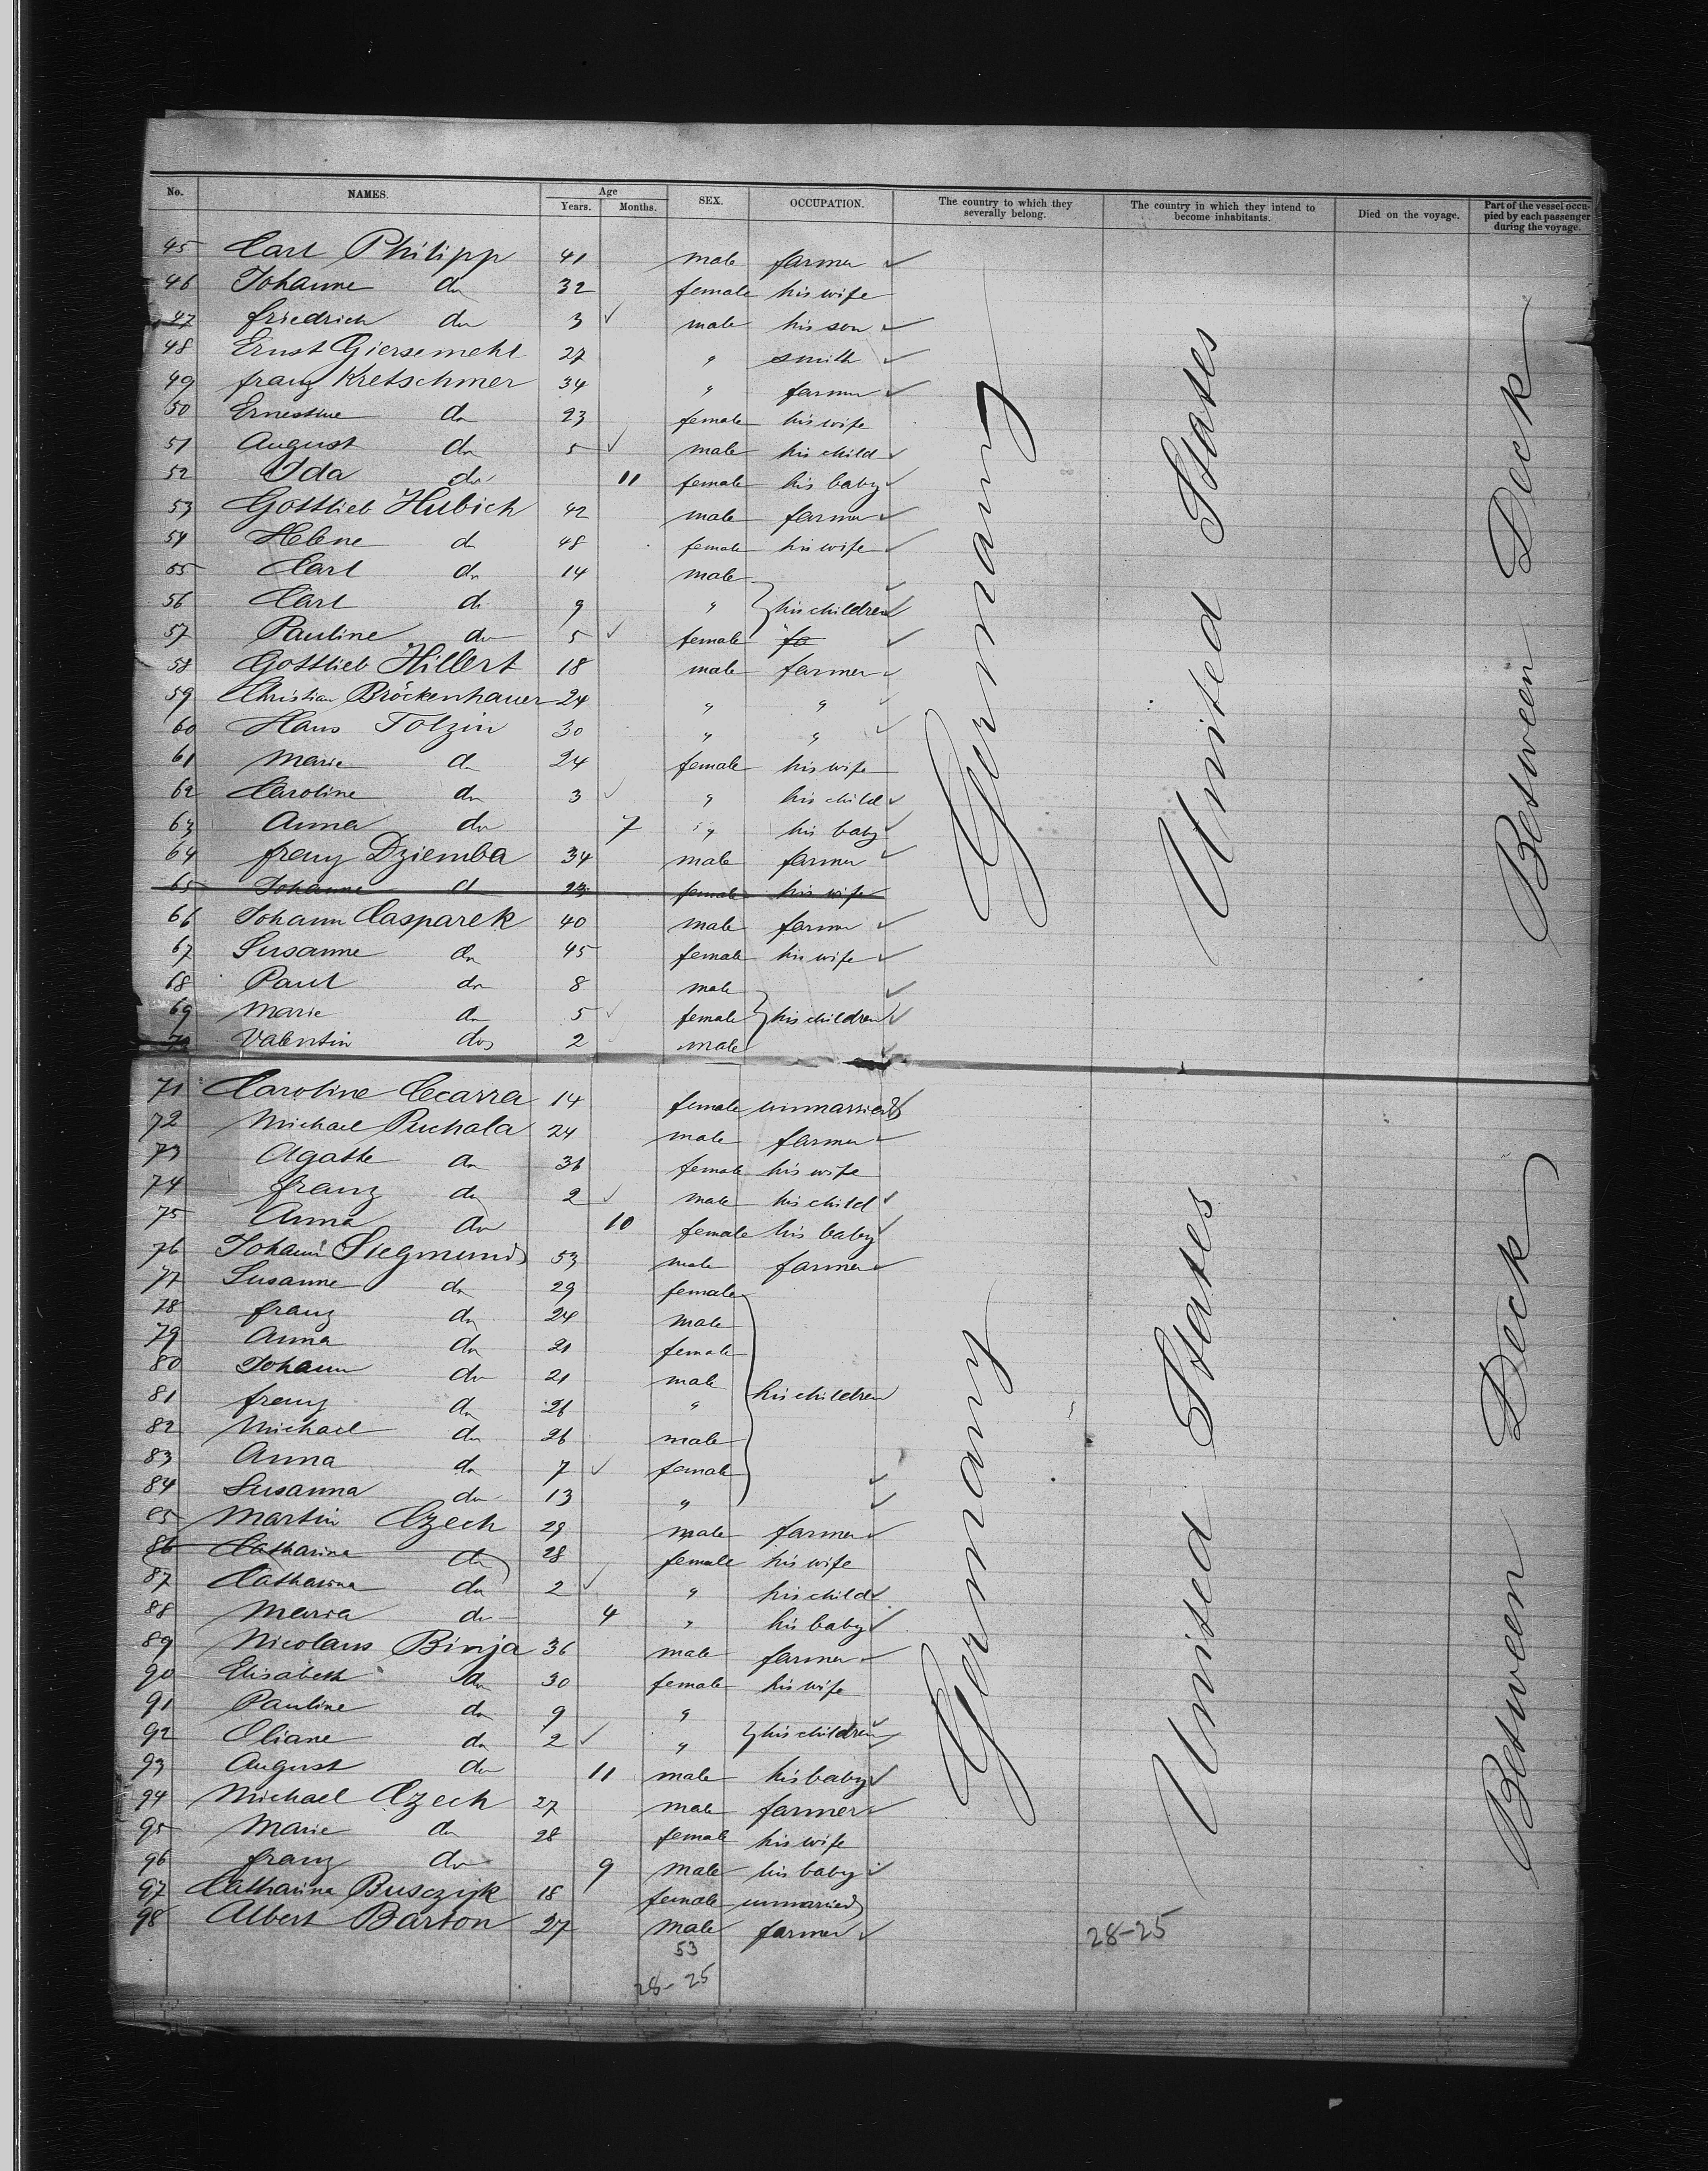 No. NAMES. Age Years. Months. SEX. OCCUPATION. The country to which they severally belong. The country in which they intend to become inhabitants. Died on the voyage. Part of the vessel occupied by each passenger during the voyage.
45 Carl Philipp 41 male farmer
46 Johanne do 32 female his wife
47 friedrich do 3 male his son
48 Ernst Giersemehl 27 " smith
49 franz Kretschmer 34 " farmer
50 Ernestine do 23 female his wife
51 August do 5 male his child
52 Ida do 11 female his baby
53 Gottlieb Hubich 42 male farmer
54 Helene do 48 female his wife
55 Carl do 14 male
56 Carl do 9 " his children
57 Pauline do 5 female fa
58 Gottlieb Hillert 18 male farmer
59 Christian Bröckenhauer 24 " "
60 Hans Tolzin 30 " "
61 Marie do 24 female his wife
62 Caroline do 3 " his child
63 Anna do 7 " his baby
64 franz Dziemba 34 male farmer
65 Johanne do 23 female his wife
66 Johann Casparek 40 male farmer
67 Susanne do 45 female his wife
68 Paul do 8 male
69 Marie do 5 female his children
70 Valentin do 2 male
Germany United States Between Deck
71 Caroline Cecarra 14 female unmarried
72 Michael Puchala 24 male farmer
73 Agathe do 36 female his wife
74 franz do 2 male his child
75 Anna do 10 female his baby
76 Johann Siegmund 53 male farmer
77 Susanne do 29 female
78 franz do 24 male
79 Anna do 21 female
80 Johann do 21 male
81 franz do 26 " his children
82 Michael do 26 male
83 Anna do 7 female
84 Susanna do 13 "
85 Martin Czech 29 male farmer
86 Catharina do 28 female his wife
87 Catharina do 2 " his child
88 Maria do 4 " his baby
89 Nicolaus Binja 36 male farmer
90 Elisabeth do 30 female his wife
91 Pauline do 9 "
92 Oliane do 2 " his children
93 August do 11 male his baby
94 Michael Czech 27 male farmer
95 Marie do 28 female his wife
96 franz do 9 male his baby
97 Catharina Busczyk 18 female unmarried
98 Albert Barton 27 male farmer
Germany United States Between Deck
53
28-25
28-25